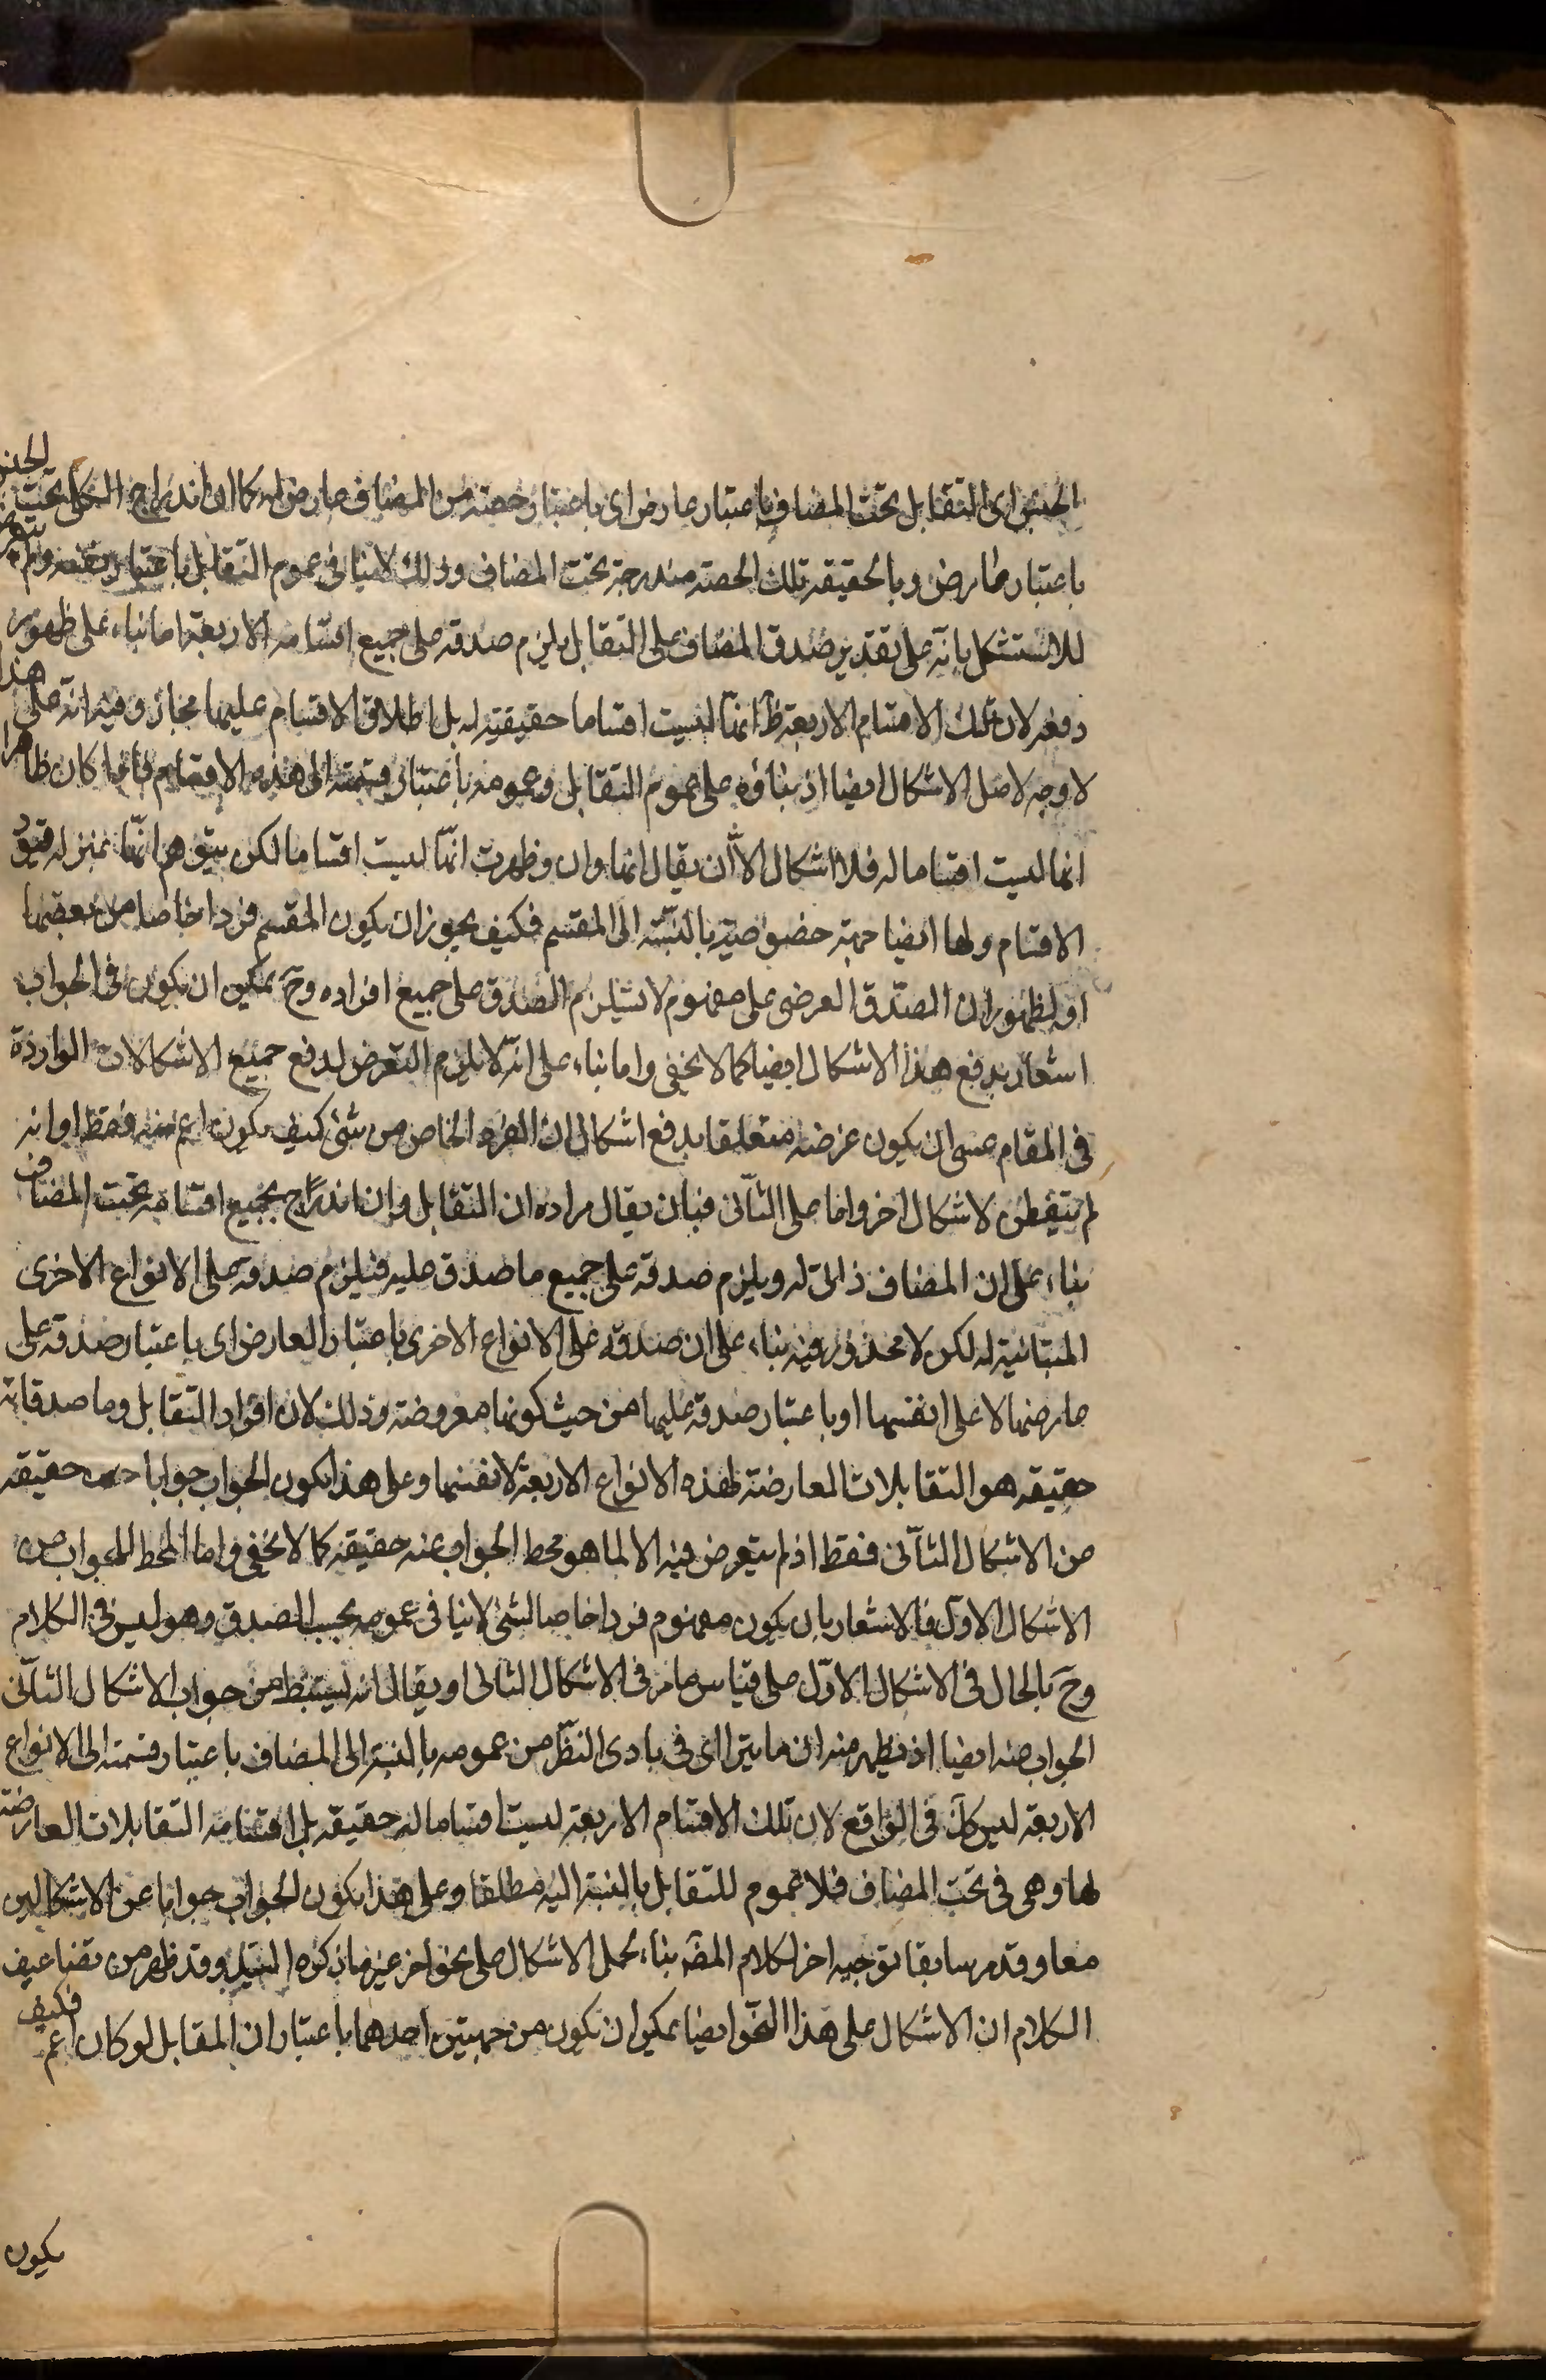 الجنس اى التقابل تحت المضاف باعتبار عارض اى باعتبار حصته من المضاف عارض له كما ان اندراج الكلى تحت الجنس
باعتبار عارض وبالحقيقه تلك الحصته مندرجة تحت المضاف وذلك لا ينافى عموم التقابل باعتبار نفسه ولم يتعرض
للاستشكل بانه على تقدير صدق المضاف على التقابل يلزم صدقه على جميع اقسامه الاربعة اما بناء على ظهور
دفعه لان تلك الاقسام الاربعة انها ليست اقساما حقيقيته له بل اطلاق الاقسام عليها مجاز وفيه انه على هذا
لا وجه لاصل الاشكال ايضا اذ بناؤه على عموم التقابل وعمومه باعتبار قسمته الى هذه الاقسام فاذا كان ظاهرا
انها ليست اقساما له فلا اشكال الا أن يقال انها وان وظهرت انها ليست اقساما لكن يتوهم انها بمنزله قيود
الاقسام ولها ايضا جهة خصوصية بالنسبة الى المقسم فكيف يجوز ان يكون المقسم فردا خاصا من بعضها
او لظهور ان الصدق العرضى على مفهوم لا يستلزم الصدق على جميع افراده وح يمكن ان يكون فى الجواب
اشعار بدفع هذا الاشكال ايضا كما لا يخفى واما بناء على انه لا يلزم التعرض لدفع جميع الاشكالات الواردة
فى المقام عسى ان يكون غرضه متعلقا بدفع اشكال ان الفرد الخاص من شئ كيف يكون اعم منه فقط او انه
لم يتفطن لاشكال اخر واما على الثانى فبان يقال مراده ان التقابل وان اندراج بجميع اقسامه تحت المضاف
بناء على ان المضاف ذاتى له ويلزم صدقه على جميع ما صدق عليه فيلزم صدقه على الانواع الاخرى
المتباينة له لكن لا محذور فيه بناء على ان صدقه على الانواع الاخرى باعتبار العارض اى باعتبار صدقه على
عارضها لا على انفسها او باعتبار صدقه عليها من حيث كونها معروضته وذلك لان افراد التقابل وما صدقاته
حقيقه هو التقابلات العارضة لهذه الانواع الاربعة لا نفسها وعلى هذا يكون الجواب جوابا حقيقه
من الاشكال الثانى فقط اذ لم يتعرض فيه الا لما هو محط الجواب عنه حقيقه كما لا يخفى واما المحط للجواب عن
الاشكال الاول فالاشعار بان يكون مفهوم فردا خاصا لشئ لا ينافى عمومه بحسب الصدق وهو ليس فى الكلام
وح بالحال فى الاشكال الاول على قياس ما مر فى الاشكال الثانى او يقال انه يستنبط من جواب الاشكال الثانى
الجواب عنه ايضا اذ يظهر منه ان ما يترااى فى بادى النظر من عمومه بالنسبة الى المضاف باعتبار قسمته الى الانواع
الاربعه ليس كك فى الواقع لان تلك الاقسام الاربعه ليست اقساما له حقيقه بل اقسامه التقابلات العارضة
لها وهى فى تحت المضاف فلا عموم للتقابل بالنسبة اليه مطلقا وعلى هذا يكون الجواب جوابا عن الاشكالين
معا وقد مر سابقا توجيه اخر لكلام المصّ بناء لحمل الاشكال على نحو اخر غير ما ذكره السيد وقد ظهر من تضاعيف
الكلام ان الاشكال على هذا النحو ايضا يمكن ان تكون من جهتين احدهما باعتبار ان المقابل لو كان اعم فكيف
يكون